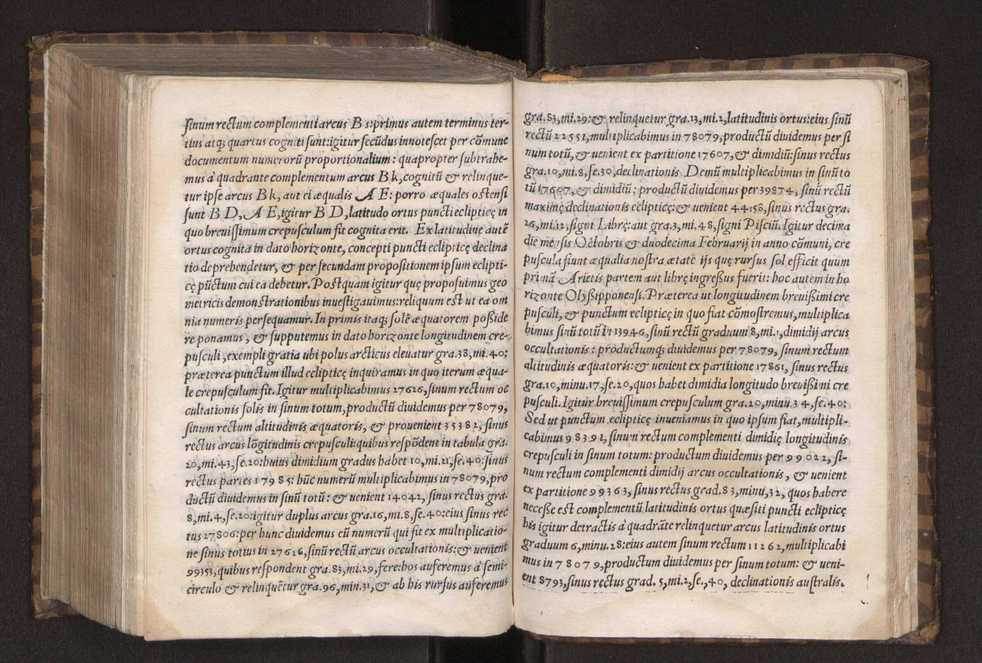 sinum rectum complementi arcus B s:primus autem terminus ter-
tius atq; quartus cogniti sunt:igitur secũdus innotescet per cõmune
documentum numerorũ proportionalium: quapropter subtrahe-
mus à quadrante complementum arcus B k, cognitũ & relinque-
tur ipse arcus B k, aut ei æqualis A E: porro æquales ostensi
sunt B D, A E, igitur B D, latitudo ortus puncti eclipticę in
quo breuissimum crepusculum fit cognita erit. Ex latitudine autẽ
ortus cognita in dato horizonte, concepti puncti eclipticę declina
tio deprehendetur, & per secundam propositionem ipsum ecclipti-
cę pũctum cui ea debetur. Postquam igitur quę proposuimus geo
metricis demonstrationibus inuestigauimus:reliquum est ut ea om
nia numeris persequamur. In primis itaq; solẽ æquatorem posside
re ponamus, & supputemus in dato horizonte longitudinem cre-
pusculi, exempli gratia ubi polus arcticus eleuatur gra.38, mi.40:
præterea punctum illud eclipticę inquiramus in quo iterum æqua-
le crepusculum fit. Igitur multiplicabimus 27626, sinum rectum oc
cultationis solis in sinum totum, productũ diuidemus per 78079,
sinum rectum altitudinis æquatoris, & prouenient 35382, sinus
rectus arcus lõgitudinis crepusculi:quibus respõdent in tabula gra.
20, mi.43, se.20:huius dimidium gradus habet 10, mi.21, se.40: sinus
rectus partes 17985: hũc numerũ multiplicabimus in 78079, pro
ductũ diuidemus in sinũ totũ: & uenient 14042, sinus rectus gra.
8, mi.4, se.20:igitur duplus arcus gra.16, mi.8, se.40: eius sinus rec
tus 27806: per hunc diuidemus eũ numerũ qui fit ex multiplicatio-
ne sinus totius in 27626, sinũ rectũ arcus occultationis:& uenient
99353, quibus respondent gra.83, mi.29, ferè:hos auferemus à semi-
circulo & relinquẽtur gra.96, min.31, & ab his rursus auferemus
gra.83, mi.29:& relinquetur gra.13, mi.2, latitudinis ortus:eius sinũ
rectũ 22551, multiplicabimus in 78079, productũ diuidemus per si
num totũ, & uenient ex partitione 17607, & dimidiũ:sinus rectus
gra.10, mi.8, se.30, declinationis. Demũ multiplicabimus in sinũ to
tũ 17607, & dimidiũ: productũ diuidemus per 39874, sinũ rectũ
maximę declinationis eclipticę:& uenient 44158, sinus rectus gra.
26, mi.12, signi Librę: aut gra.3, mi.48, signi Pisciũ. Igitur decima
die mensis Octobris & duodecima Februarij in anno cõmuni, cre
puscula fiunt æqualia nostra ætate ijs quę rursus sol efficit quum
primã Arietis partem aut librę ingressus fuerit: hoc autem in ho
rizonte Olysipponensi. Præterea ut longitudinem breuissimi cre
pusculi, & punctum eclipticę in quo fiat cõmostremus, multiplica
bimus sinũ totũ 1 13946, sinũ rectũ graduum 8, mi.1, dimidij arcus
occultationis: productumq; diuidemus per 78079, sinum rectum
altitudinis æquatoris:& uenient ex partitione 17861, sinus rectus
gra.10, minu.17, se.20, quos habet dimidia longitudo breuissimi cre
pusculi. Igitur breuissimum crepusculum gra.20, minu.34, se.40:
Sed ut punctum eclipticę inueniamus in quo ipsum fiat, multipli-
cabimus 98392, sinum rectum complementi dimidię longitudinis
crepusculi in sinum totum: productum diuidemus per 99022, si-
num rectum complementi dimidij arcus occultationis, & uenient
ex partitione 99363, sinus rectus grad.83, minu,32, quos habere
necesse est complementũ latitudinis ortus quæsiti puncti eclipticę
his igitur detractis à quadrãte relinquetur arcus latitudinis ortus
graduum 6, minu.28: eius autem sinum rectum 11262, multiplicabi
mus in 78079, productum diuidemus per sinum totum: & ueni-
ent 8793, sinus rectus grad. 5, mi.2, se., 40, declinationis australis.